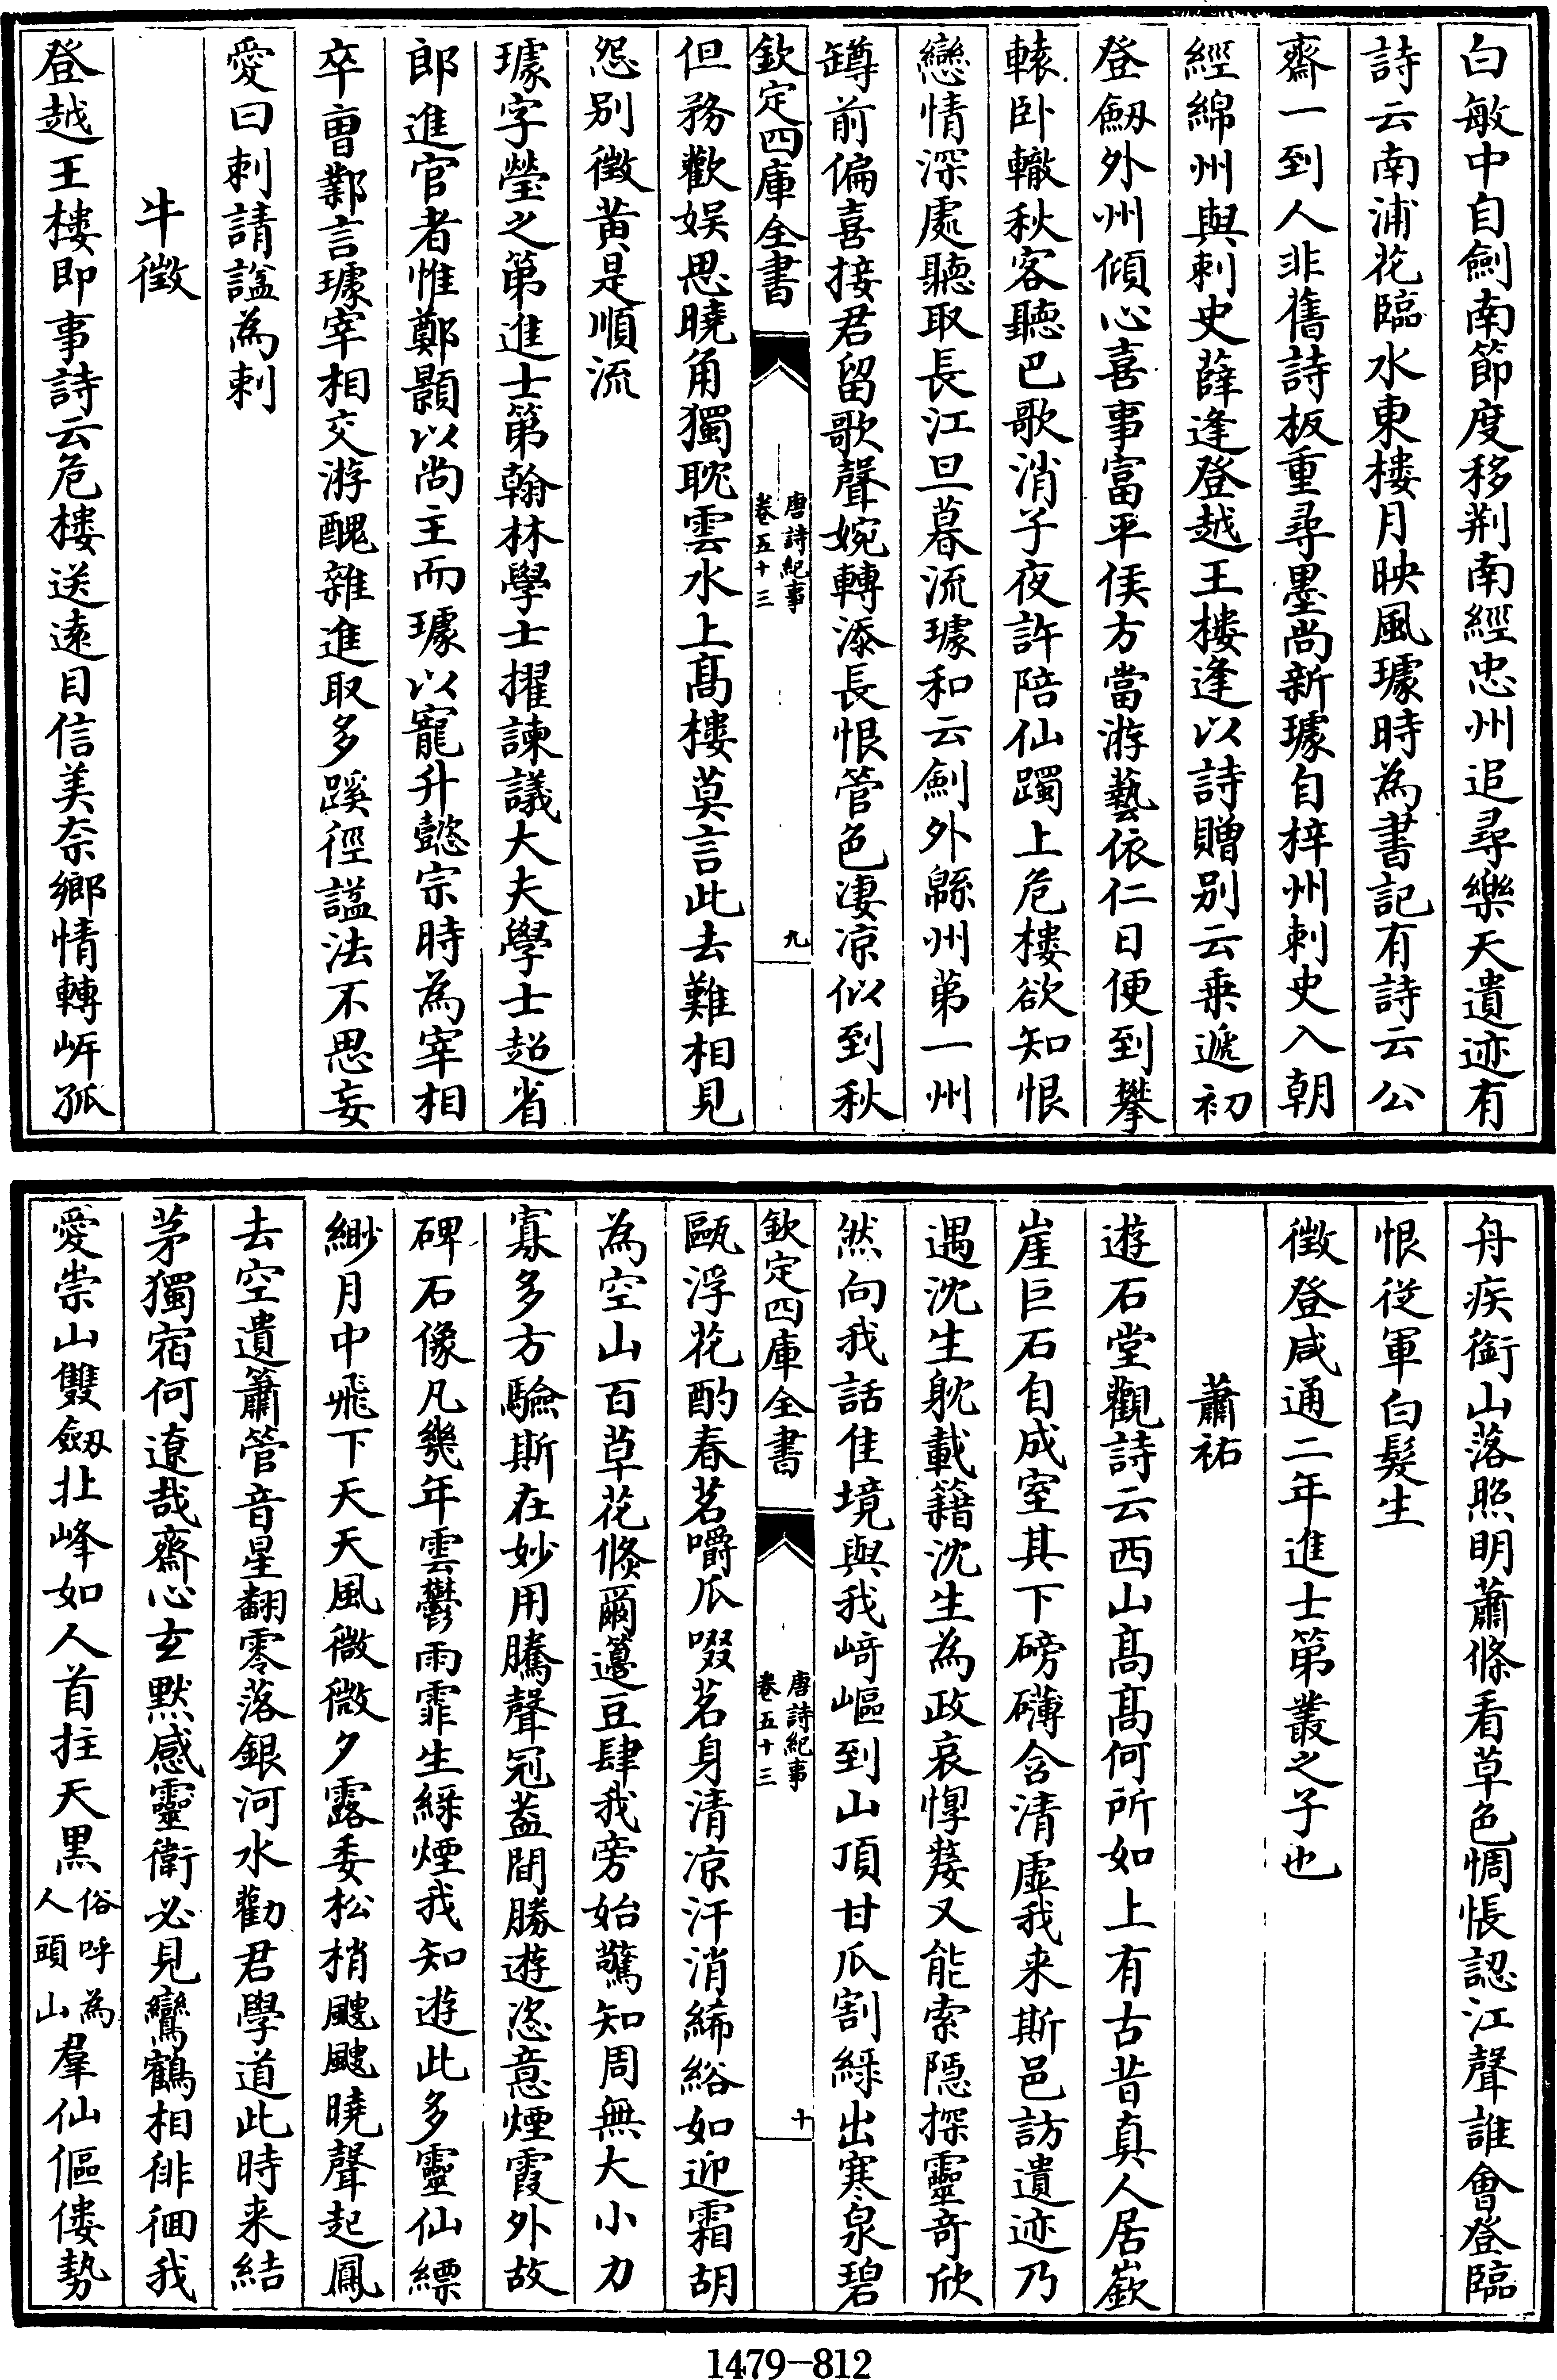 白敏中自劍南節度移荆南經忠州追尋樂天遺迹有
詩云南浦花臨水東樓月映風璩時為書記有詩云公
齋一到人非舊詩板重尋墨尚新璩自梓州刺史入朝
經綿州與刺史薛逢登越王樓逢以詩贈别云乗遞初
登劒外州傾心喜事富平侯方當游藝依仁日便到攀
轅卧轍秋客聽巴歌消子夜許陪仙躅上危樓欲知恨
戀情深處聽取長江旦暮流璩和云劍外緜州第一州
罇前偏喜接君留歌聲婉轉添長恨管色凄凉似到秋
欽定四庫全書
唐詩紀事
卷五十三
九
但務歡娱思曉角獨耽雲水上髙樓莫言此去難相見
怨别徵黄是順流
璩字瑩之第進士第翰林學士擢諫議大夫學士超省
郎進官者惟鄭顥以尚主而璩以寵升懿宗時為宰相
卒曹鄴言璩宰相交游醜雜進取多蹊徑謚法不思妄
愛曰刺請謚為刺
牛徵
登越王樓即事詩云危樓送逺目信美奈鄉情轉岸孤
舟疾銜山落照明蕭條看草色惆悵認江聲誰會登臨
恨從軍白髮生
徵登咸通二年進士第叢之子也
蕭祐
遊石堂觀詩云西山髙髙何所如上有古昔真人居嶔
崖巨石自成室其下磅礴含清虚我来斯邑訪遺迹乃
遇沈生躭載籍沈生為政哀惸嫠又能索隠探靈竒欣
然向我話佳境與我﨑嶇到山頂甘瓜割綠出寒泉碧
欽定四庫全書
唐詩紀事
卷五十三
十
甌浮花酌春茗嚼瓜啜茗身清凉汗消絺綌如迎霜胡
為空山百草花倐爾籩豆肆我旁始驚知周無大小力
寡多方驗斯在妙用騰聲冠葢間勝遊恣意煙霞外故
碑石像凡幾年雲鬱雨霏生綠煙我知遊此多靈仙縹
緲月中飛下天天風微微夕露委松梢颼颼曉聲起鳳
去空遺簫管音星翻零落銀河水勸君學道此時来結
茅獨宿何遼哉齋心𤣥默感靈衛必見鸞鶴相徘徊我
愛崇山雙劒北峰如人首拄天黒俗呼為人頭山羣仙傴僂勢
1479-812